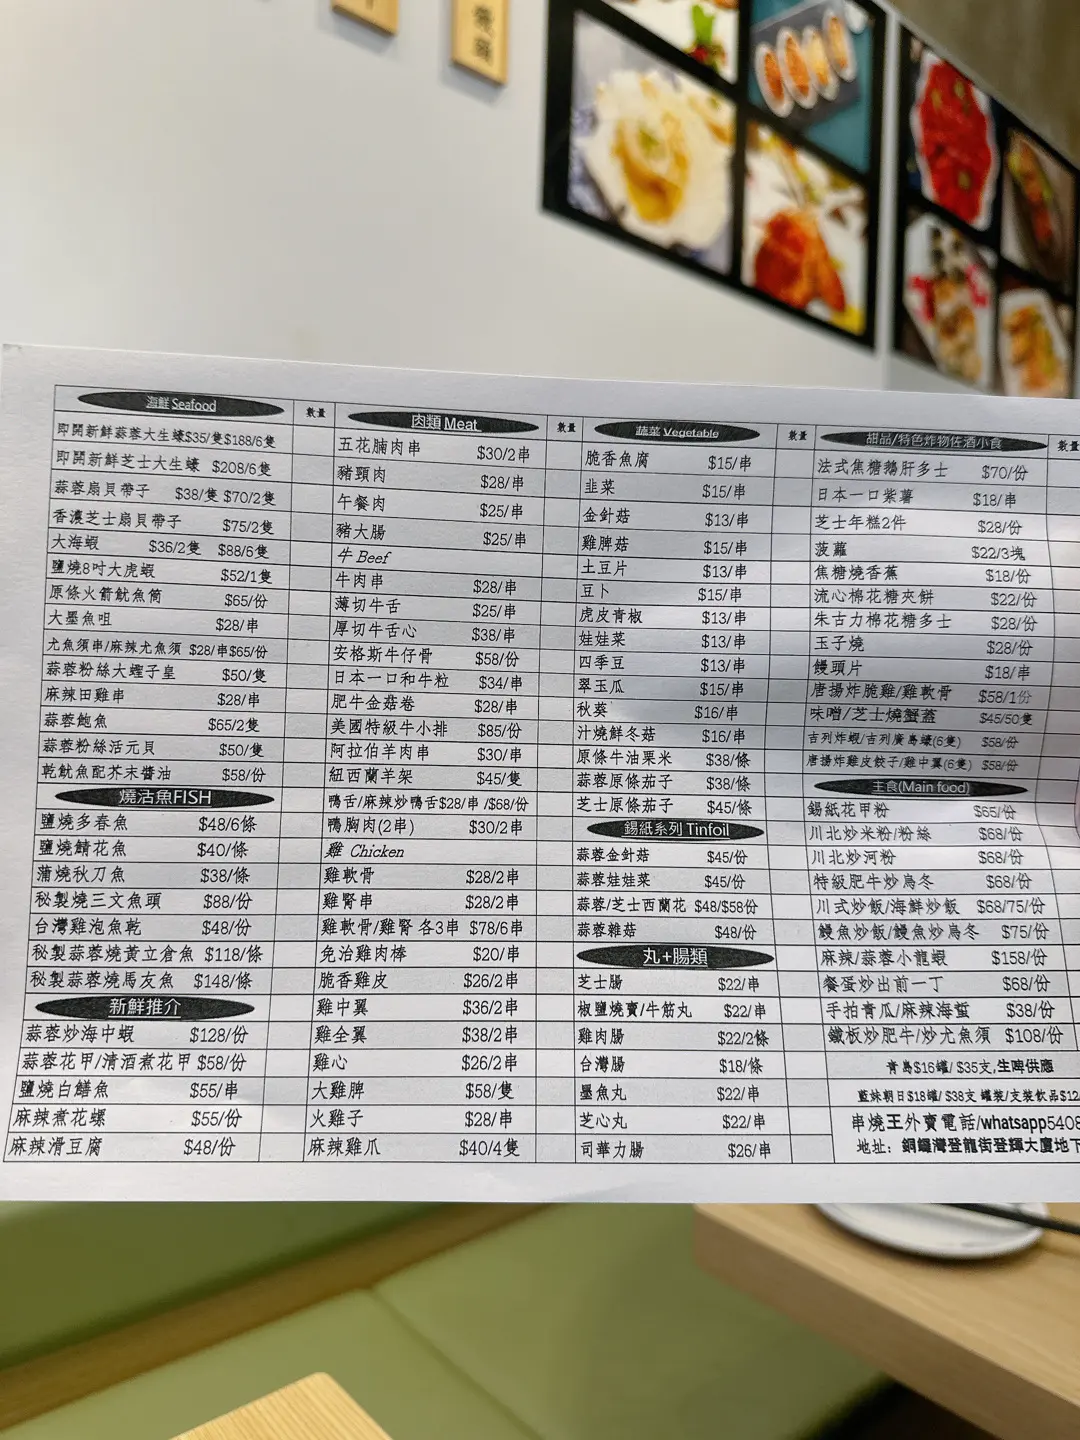 海鮮 Seafood 數量
即開新鮮蒜蓉大生蠔$35/隻$188/6隻
即開新鮮芝士大生蠔 $208/6隻
蒜蓉扇貝帶子 $38/隻 $70/2隻
香濃芝士扇貝帶子 $75/2隻
大海蝦 $36/2隻 $88/6隻
鹽燒8吋大虎蝦 $52/1隻
原條火箭魷魚筒 $65/份
大墨魚咀 $28/串
尤魚須串/麻辣尤魚須 $28/串$65/份
蒜蓉粉絲大蟶子皇 $50/隻
麻辣田雞串 $28/串
蒜蓉鮑魚 $65/2隻
蒜蓉粉絲活元貝 $50/隻
乾魷魚配芥末醬油 $58/份
燒活魚FISH
鹽燒多春魚 $48/6條
鹽燒鯖花魚 $40/條
蒲燒秋刀魚 $38/條
秘製燒三文魚頭 $88/份
台灣雞泡魚乾 $48/份
秘製蒜蓉燒黃立倉魚 $118/條
秘製蒜蓉燒馬友魚 $148/條
新鮮推介
蒜蓉炒海中蝦 $128/份
蒜蓉花甲/清酒煮花甲 $58/份
鹽燒白鱔魚 $55/串
麻辣煮花螺 $55/份
麻辣滑豆腐 $48/份
肉類 Meat 數量
五花腩肉串 $30/2串
豬頸肉 $28/串
午餐肉 $25/串
豬大腸 $25/串
牛 Beef
牛肉串 $28/串
薄切牛舌 $25/串
厚切牛舌心 $38/串
安格斯牛仔骨 $58/份
日本一口和牛粒 $34/串
肥牛金菇卷 $28/串
美國特級牛小排 $85/份
阿拉伯羊肉串 $30/串
紐西蘭羊架 $45/隻
鴨舌/麻辣炒鴨舌$28/串 /$68/份
鴨胸肉(2串) $30/2串
雞 Chicken
雞軟骨 $28/2串
雞腎串 $28/2串
雞軟骨/雞腎 各3串 $78/6串
免治雞肉棒 $20/串
脆香雞皮 $26/2串
雞中翼 $36/2串
雞全翼 $38/2串
雞心 $26/2串
大雞脾 $58/隻
火雞子 $28/串
麻辣雞爪 $40/4隻
蔬菜 Vegetable 數量
脆香魚腐 $15/串
韭菜 $15/串
金針菇 $13/串
雞脾菇 $15/串
土豆片 $13/串
豆卜 $15/串
虎皮青椒 $13/串
娃娃菜 $13/串
四季豆 $13/串
翠玉瓜 $15/串
秋葵 $16/串
汁燒鮮冬菇 $16/串
原條牛油粟米 $38/條
蒜蓉原條茄子 $38/條
芝士原條茄子 $45/條
錫紙系列 Tinfoil
蒜蓉金針菇 $45/份
蒜蓉娃娃菜 $45/份
蒜蓉/芝士西蘭花 $48/$58份
蒜蓉雜菇 $48/份
丸+腸類
芝士腸 $22/串
椒鹽燒賣/牛筋丸 $22/串
雞肉腸 $22/2條
台灣腸 $18/條
墨魚丸 $22/串
芝心丸 $22/串
司華力腸 $26/串
甜品/特色炸物佐酒小食 數量
法式焦糖鵝肝多士 $70/份
日本一口紫薯 $18/串
芝士年糕2件 $28/份
菠蘿 $22/3塊
焦糖燒香蕉 $18/份
流心棉花糖夾餅 $22/份
朱古力棉花糖多士 $28/份
玉子燒 $28/份
饅頭片 $18/串
唐揚炸脆雞/雞軟骨 $58/1份
味噌/芝士燒蟹蓋 $45/50隻
吉列炸蝦/吉列廣島蠔(6隻) $58/份
唐揚炸雞皮餃子/雞中翼(6隻) $58/份
主食(Main food)
錫紙花甲粉 $65/份
川北炒米粉/粉絲 $68/份
川北炒河粉 $68/份
特級肥牛炒烏冬 $68/份
川式炒飯/海鮮炒飯 $68/75/份
鰻魚炒飯/鰻魚炒烏冬 $75/份
麻辣/蒜蓉小龍蝦 $158/份
餐蛋炒出前一丁 $68/份
手拍青瓜/麻辣海蜇 $38/份
鐵板炒肥牛/炒尤魚須 $108/份
青島$16罐/ $35支,生啤供應
藍妹朝日$18罐/ $38支 罐裝/支裝飲品$12
串燒王外賣電話/whatsapp5408
地址: 銅鑼灣登龍街登輝大廈地下